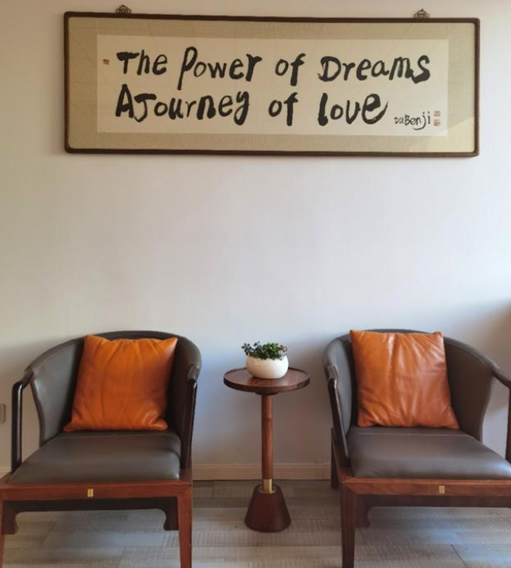 The Power of Dreams
A Journey of love
DuBenji